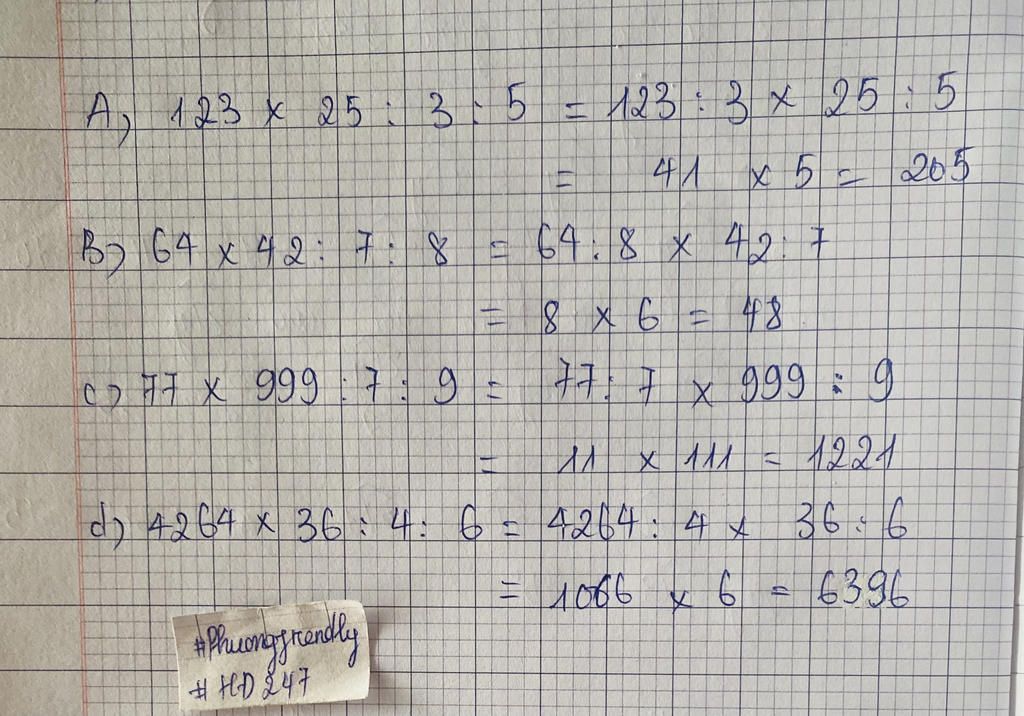 A) 123 x 25 : 3 : 5 = 123 : 3 x 25 : 5
= 41 x 5 = 205
B) 64 x 42 : 7 : 8 = 64 : 8 x 42 : 7
= 8 x 6 = 48
c) 77 x 999 : 7 : 9 = 77 : 7 x 999 : 9
= 11 x 111 = 1221
d) 4264 x 36 : 4 : 6 = 4264 : 4 x 36 : 6
= 1066 x 6 = 6396
#Phuongfrendly
#HD247